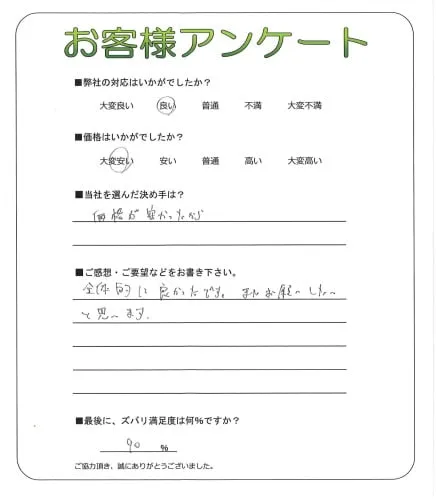 お客様アンケート
■弊社の対応はいかがでしたか？
大変良い 良い 普通 不満 大変不満
■価格はいかがでしたか？
大変安い 安い 普通 高い 大変高い
■当社を選んだ決め手は？
価格が安かったから
■ご感想・ご要望などをお書き下さい。
全体的に良かったです。またお願いしたい
と思います。
■最後に、ズバリ満足度は何％ですか？
90 ％
ご協力頂き、誠にありがとうございました。